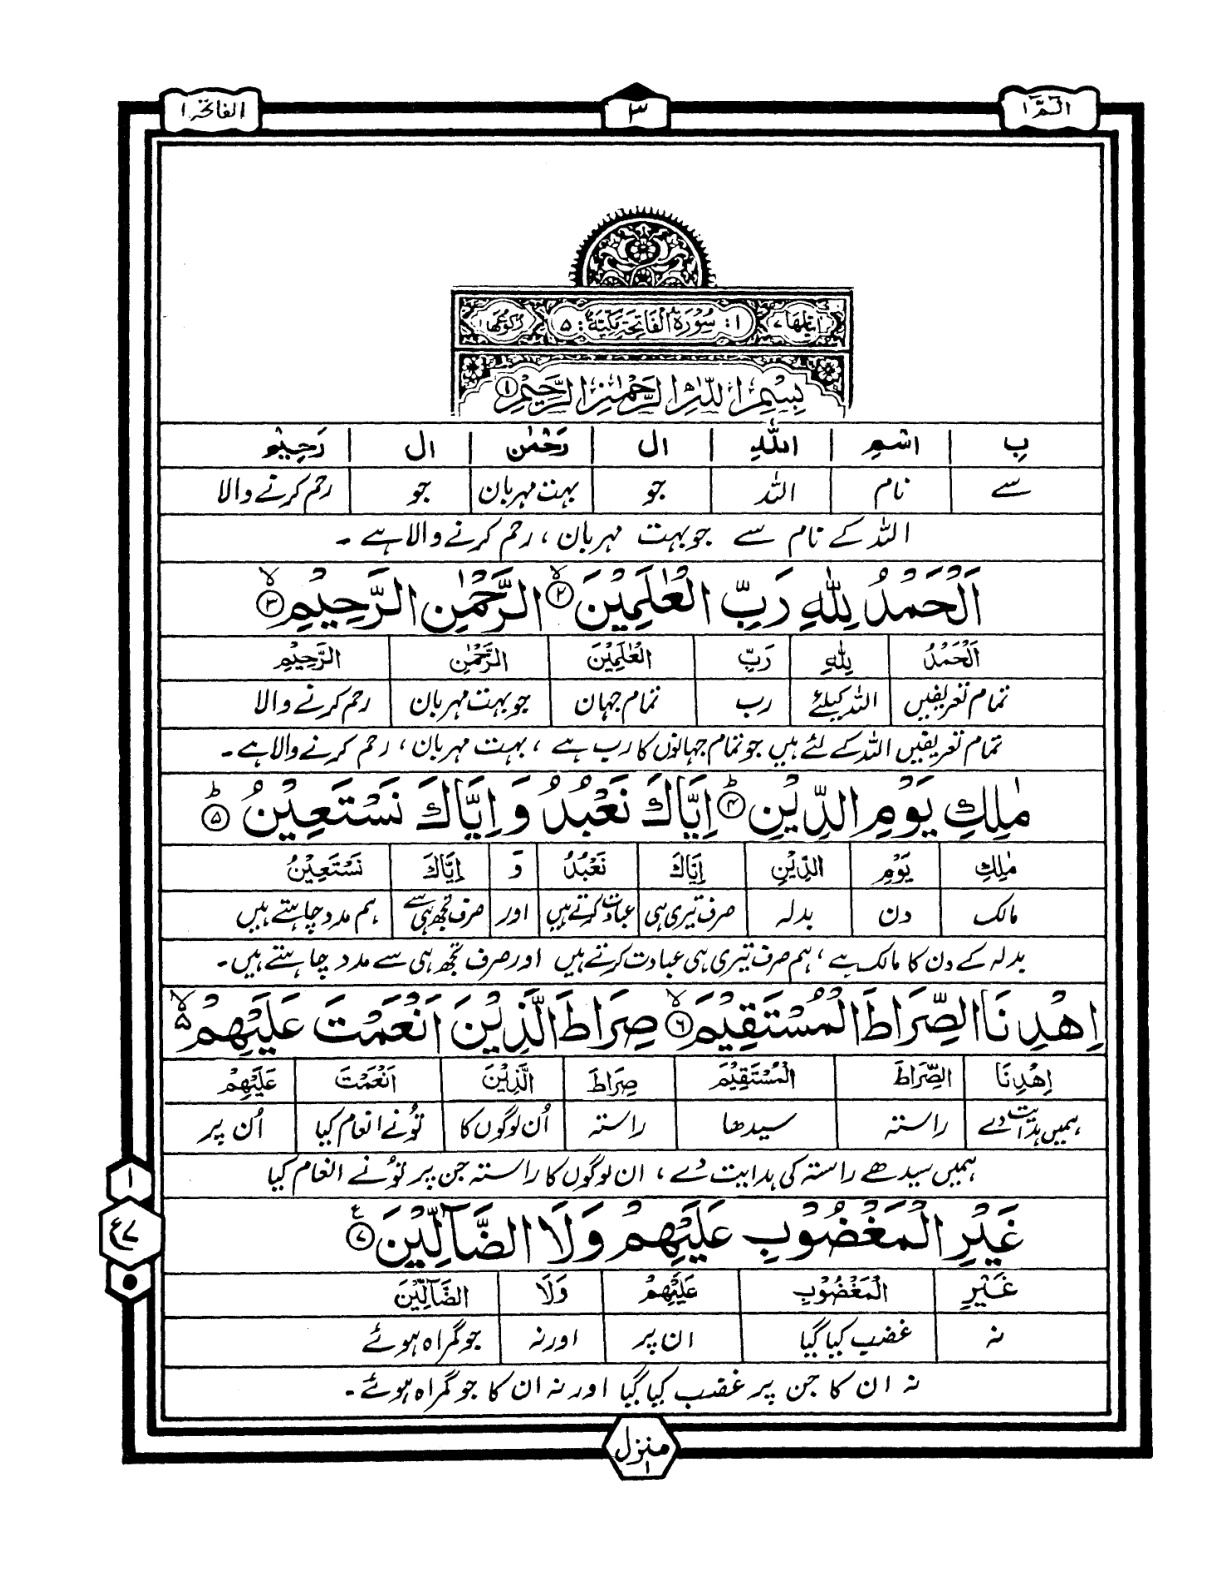 الٓمّٓ ۱
۳
الفاتحۃ ۱
اٰیٰتُهَا ۷
۱: سُوْرَةُ الْفَاتِحَةِ مَكِّيَّةٌ: ۵
رُكُوْعُهَا ۱
بِسْمِ اللّٰهِ الرَّحْمٰنِ الرَّحِيْمِ ۱
بِ | اسْمِ | اللّٰهِ | ال | رَحْمٰن | ال | رَحِيْمِ
سے | نام | اللہ | جو | بہت مہربان | جو | رحم کرنے والا
اللہ کے نام سے جو بہت مہربان ، رحم کرنے والا ہے ۔
اَلْحَمْدُ لِلّٰهِ رَبِّ الْعٰلَمِيْنَ ۙ۲ الرَّحْمٰنِ الرَّحِيْمِ ۙ۳
اَلْحَمْدُ | لِلّٰهِ | رَبِّ | الْعٰلَمِيْنَ | الرَّحْمٰنِ | الرَّحِيْمِ
تمام تعریفیں | اللہ کیلئے | رب | تمام جہان | جو بہت مہربان | رحم کرنے والا
تمام تعریفیں اللہ کے لئے ہیں جو تمام جہانوں کا رب ہے ، بہت مہربان ، رحم کرنے والا ہے ۔
مٰلِكِ يَوْمِ الدِّيْنِ ؕ۴ اِيَّاكَ نَعْبُدُ وَ اِيَّاكَ نَسْتَعِيْنُ ؕ۵
مٰلِكِ | يَوْمِ | الدِّيْنِ | اِيَّاكَ | نَعْبُدُ | وَ | اِيَّاكَ | نَسْتَعِيْنُ
مالک | دن | بدلہ | صرف تیری ہی | عبادت کرتے ہیں | اور | صرف تجھ ہی سے | ہم مدد چاہتے ہیں
بدلہ کے دن کا مالک ہے ، ہم صرف تیری ہی عبادت کرتے ہیں اور صرف تجھ ہی سے مدد چاہتے ہیں ۔
اِهْدِنَا الصِّرَاطَ الْمُسْتَقِيْمَ ۙ۶ صِرَاطَ الَّذِيْنَ اَنْعَمْتَ عَلَيْهِمْ ۙ۵
اِهْدِنَا | الصِّرَاطَ | الْمُسْتَقِيْمَ | صِرَاطَ | الَّذِيْنَ | اَنْعَمْتَ | عَلَيْهِمْ
ہمیں ہدایت دے | راستہ | سیدھا | راستہ | اُن لوگوں کا | تُونے انعام کیا | اُن پر
ہمیں سیدھے راستہ کی ہدایت دے ، ان لوگوں کا راستہ جن پر تُونے انعام کیا
غَيْرِ الْمَغْضُوْبِ عَلَيْهِمْ وَلَا الضَّآلِّيْنَ ۷ع
غَيْرِ | الْمَغْضُوْبِ | عَلَيْهِمْ | وَلَا | الضَّآلِّيْنَ
نہ | غضب کیا گیا | ان پر | اور نہ | جو گمراہ ہوئے
نہ ان کا جن پر غضب کیا گیا اور نہ ان کا جو گمراہ ہوئے ۔
۱
ع۷
منزل ۱